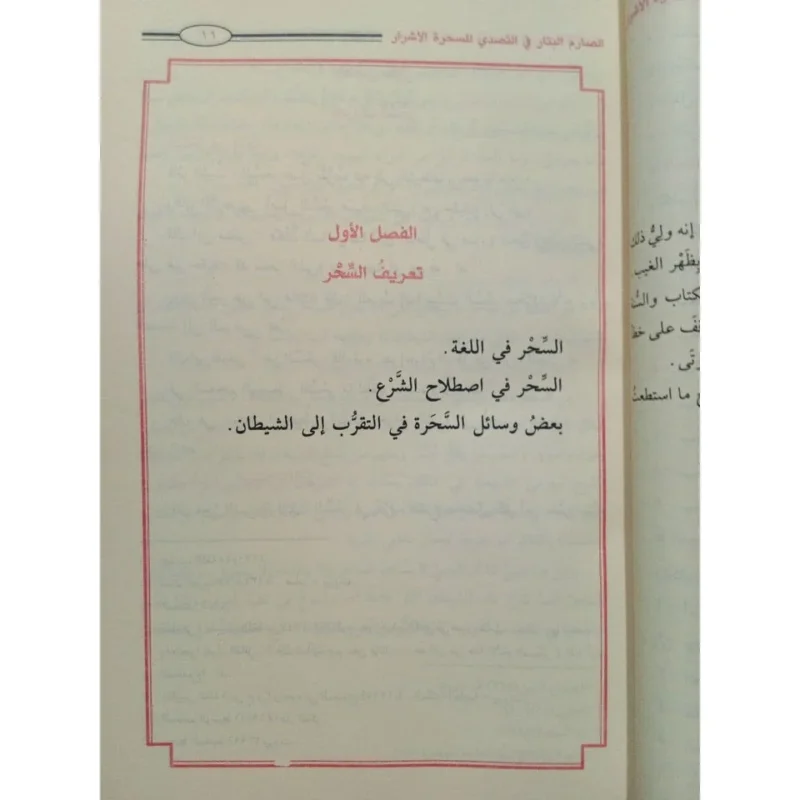 الصارم البتار في التصدي للسحرة الأشرار
١١
الفصل الأول
تعريفُ السِّحْر
السِّحْر في اللغة.
السِّحْر في اصطلاح الشَّرْع.
بعضُ وسائل السَّحَرة في التقرُّب إلى الشيطان.
إنه وليُّ ذلك
بِظَهْر الغيب
على خط
ما استطعتُ